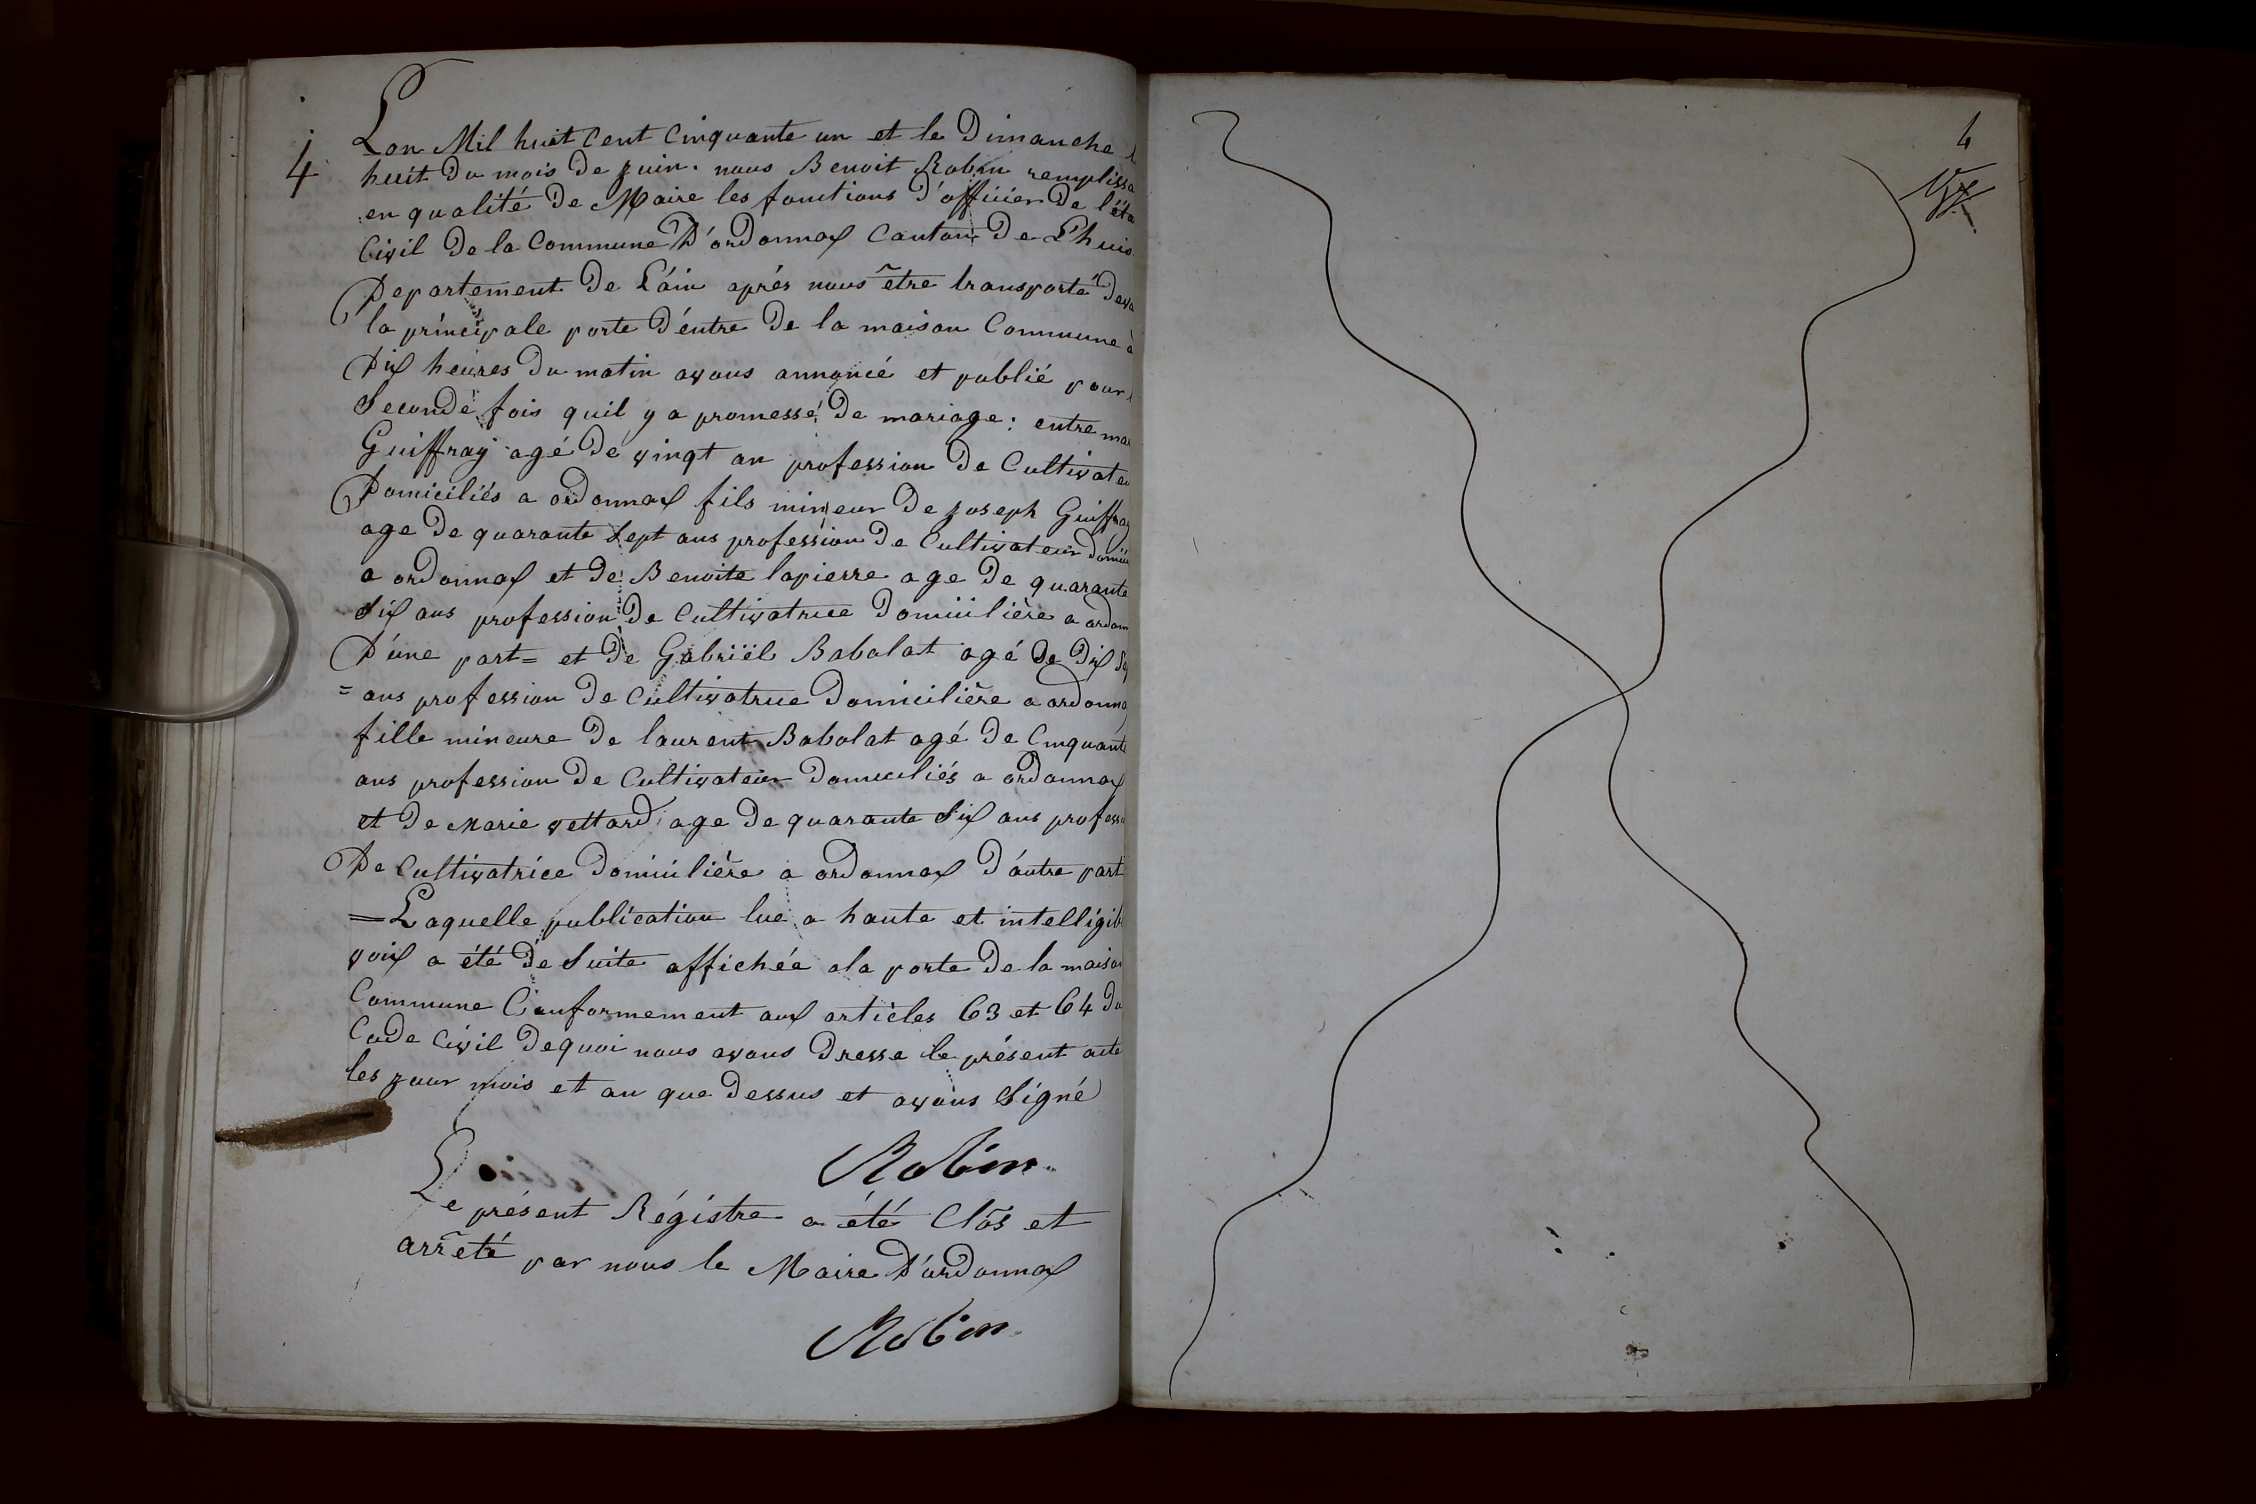 4
Lan Mil huit Cent Cinquante un et le Dimanche
huit du mois de juin. nous Benoit Robin remplissa
en qualité de Maire les fonctions d'officier de l'éta
Civil de la Commune D'ordonnax Canton de Lhuis
Departement de L'áin aprés nous être transporté deva
la principale porte d'éntre de la maison Commune à
Dix heures du matin avons annoncé et publié pour
Seconde fois quil y a promesse de mariage: entre mar
Guiffray agé de vingt an profession de Cultivateu
Domiciliés a ordonnax fils mineur de joseph Guiffray
age de quarante Sept ans profession de Cultivateur domici
a ordonnax et de Benoite lapierre age de quarante
Six ans profession de Cultivatrice domicilière a ordonn
D'úne part = et de Gabriël Babolat agé de dix Sep
= ans profession de Cultivatrice domicilière a ordonna
fille mineure de laurent Babolat agé de Cinquante
ans profession de Cultivateur domiciliés a ordonnax
et de Marie vettard age de quarante Six ans professi
De Cultivatrice domicilière a ordonnax d'áutre part
= Laquelle publication lue a haute et intelligibl
voix a été de Suite affichée ala porte de la maison
Commune Conformement aux articles 63 et 64 du
Code Civil dequoi nous avons dresse le présent acte
les jour mois et an que dessus et avons Signé
Robin
Le présent Régistre a été Clôs et
arrêté par nous le Maire D'ordonnax
Robin
4